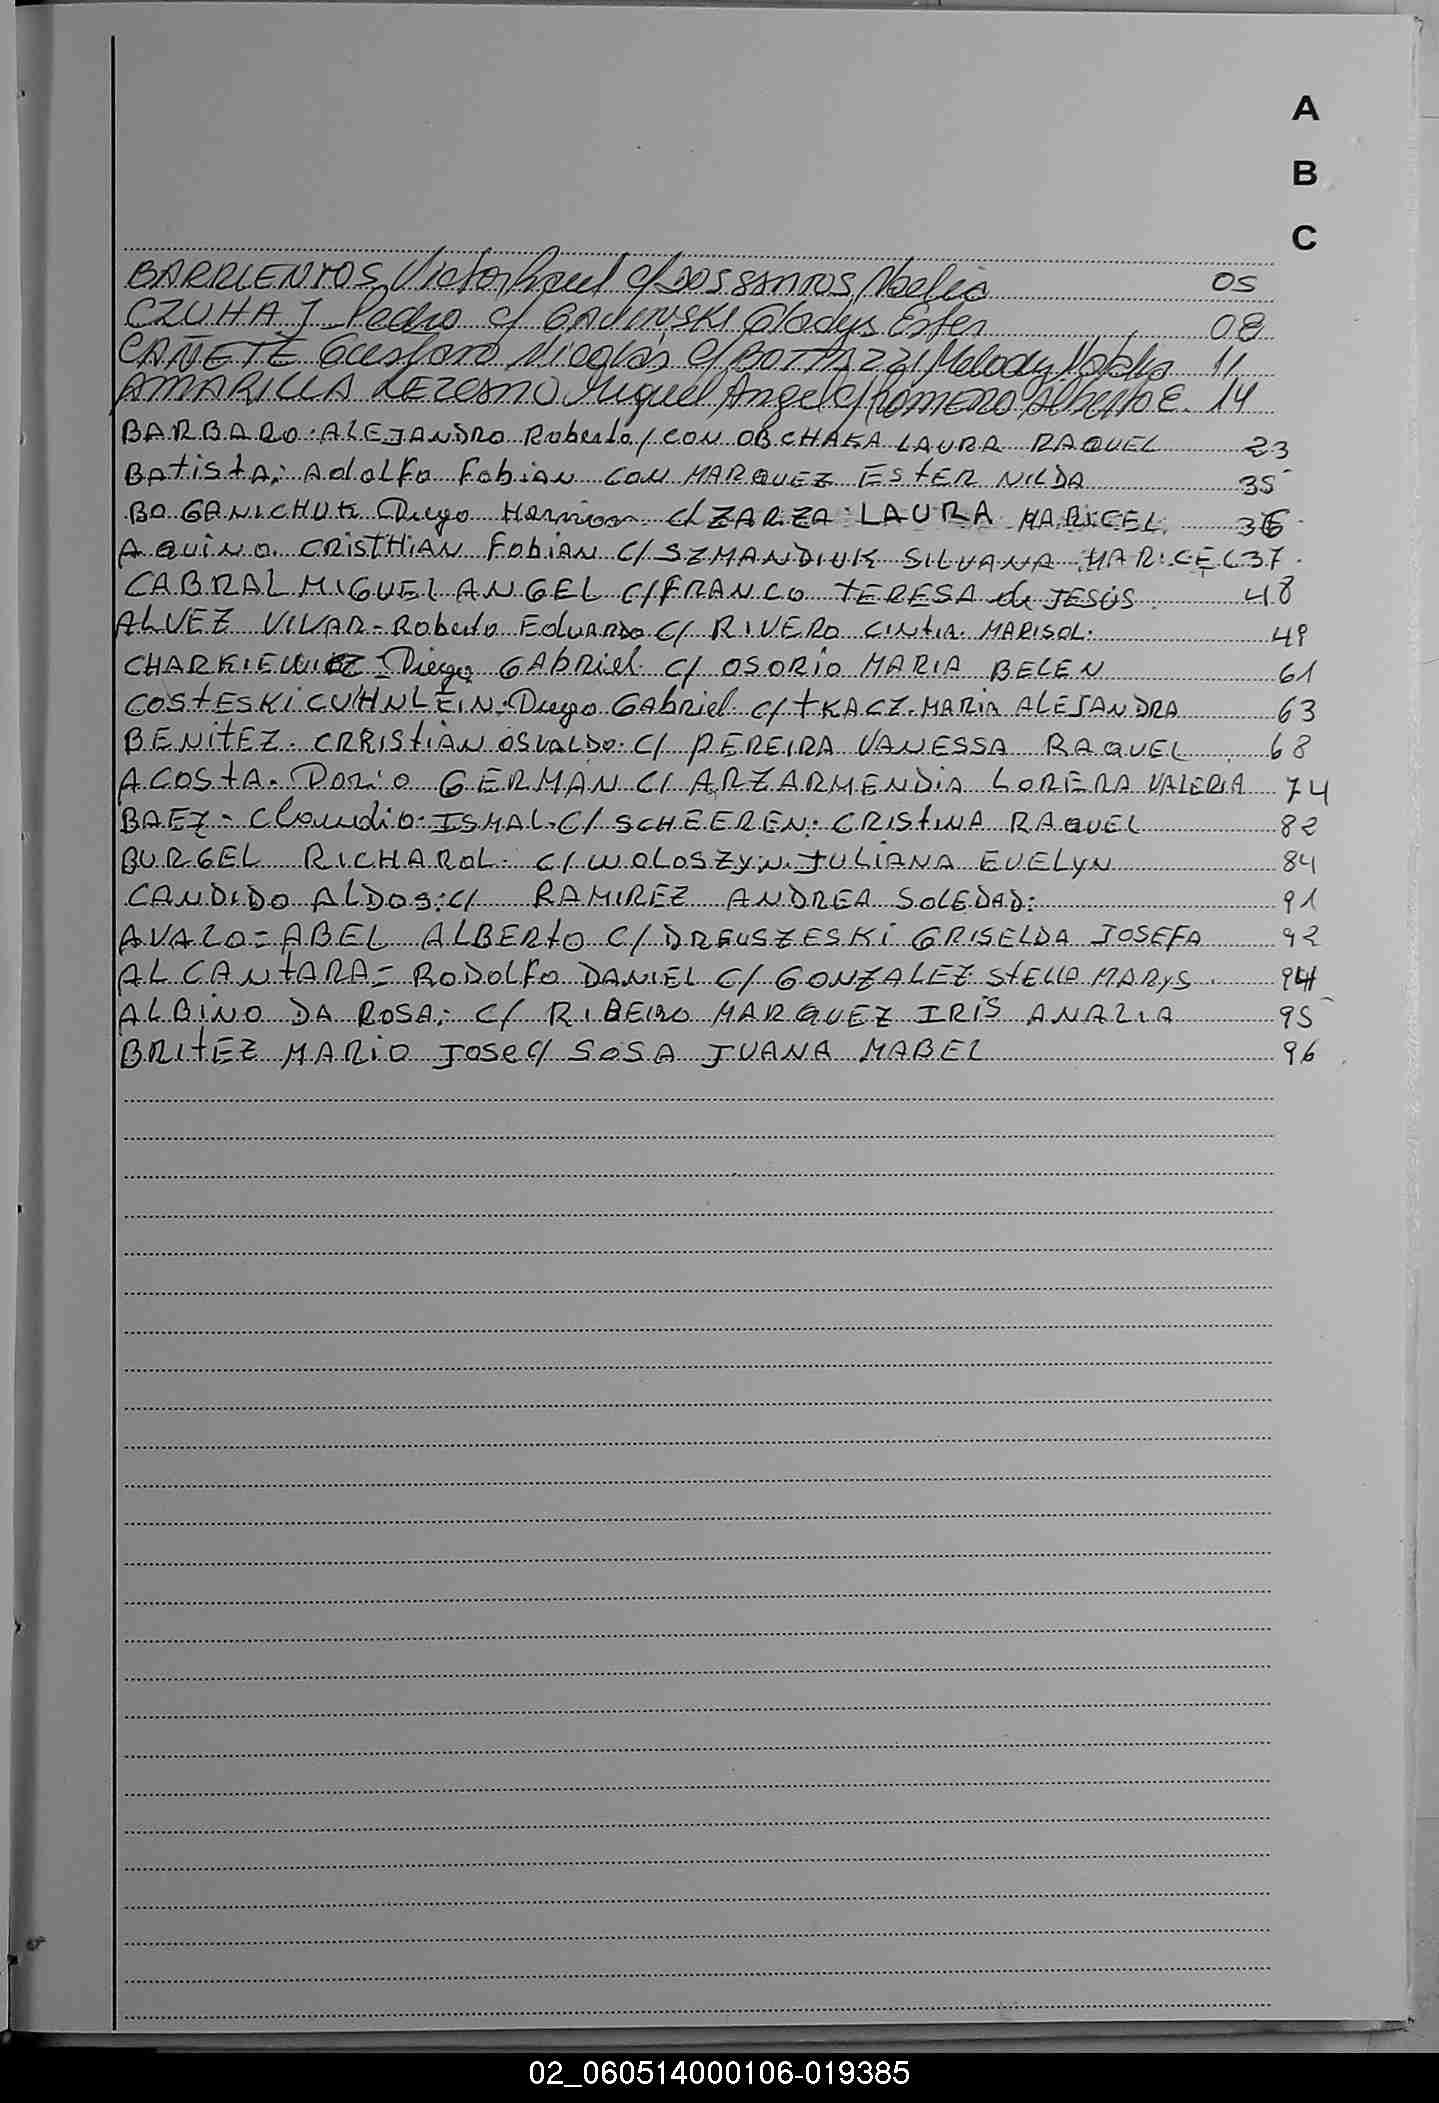 A
B
C
BARRIENTOS Victor c/ DOS SANTOS Noelia 05
CZUHAJ Pedro c/ Gladys Ester 08
CAÑETE Gustavo Nicolás c/ BOTTAZZI Melody 11
AMARILLA LEZCANO Miguel Angel c/ ROMERO Alberto E. 14
BARBARO. ALEJANDRO Roberto / CON OBCHAKA LAURA RAQUEL 23
BAtistA: AdolFo FabiAN CON MARQUEZ EStER NILDA 35
BOGANICHUK Diego Hernan c/ ZARZA LAURA MARICEL. 36
AQUiNO. CRiSTHiAN FabiAN C/ SZMANDIUK SILVANA MARICEL 37.
CABRAL MIGUEL ANGEL C/ FRANCO TERESA de JESÚS 48
ALVEZ VIVAR - Roberto EduARdo C/ RIVERO CINtiA. MARISOL. 49
CHARKIEWICZ Diego GAbriel. C/ OSORIO MARIA BELEN 61
COStESKi CUHNLEiN. Diego GAbriel. C/ tKACZ. MARiA ALEJANDRA 63
BENitEZ. CRRIStiAN OSVALDO. C/ PEREIRA VANESSA RAQUEL 68
ACOStA. DARiO GERMAN C/ ARZARMENDiA LORENA VALERIA 74
BAEZ - Claudio. ISMAL. C/ SCHEEREN. CRIStiNA RAQUEL 82
BURGEL RICHAROL. C/ WOLOSZyN. JULIANA EVELyN 84
CANDIDO ALDOS: C/ RAMIREZ ANDREA SOLEDAD: 91
AVALO = ABEL ALBERtO C/ DREUSZESKi GRISELDA JOSEFA 92
ALCANtARA = RODOLFO DANIEL C/ GONZALEZ StELLA MARyS. 94
ALBiNO DA ROSA: C/ RIBEIRO MARQUEZ IRIS ANALIA 95
BRItEZ MARIO JOSE C/ SOSA JUANA MABEL 96
02_060514000106-019385